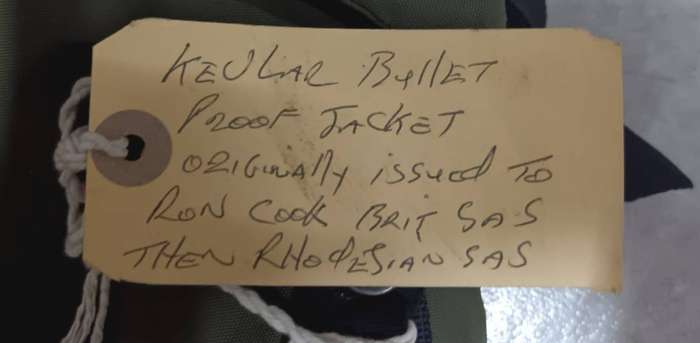 KEVLAR BULLET
PROOF JACKET
ORIGINALLY ISSUED TO
RON COOK BRIT SAS
THEN RHODESIAN SAS